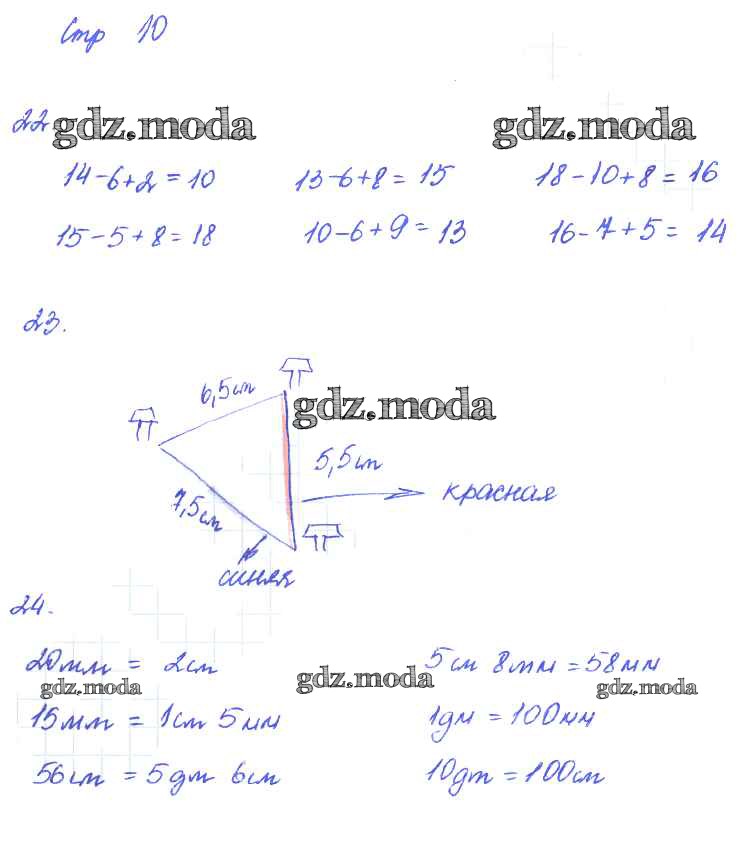 Стр 10
22 gdz.moda gdz.moda
14-6+2=10 13-6+8=15 18-10+8=16
15-5+8=18 10-6+9=13 16-7+5=14
23.
6,5см
gdz.moda
5,5см
7,5см
красная
синяя
24.
20мм = 2см 5см 8мм =58мм
gdz.moda gdz.moda gdz.moda
15мм = 1см 5мм 1дм =100мм
56см = 5дм 6см 10дм =100см